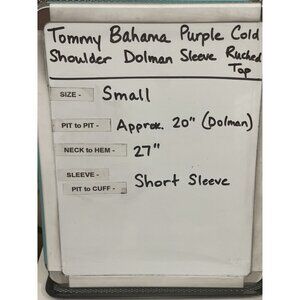 Tommy Bahama Purple Cold
Shoulder Dolman Sleeve Ruched
Top
SIZE - Small
PIT to PIT - Approx. 20" (Dolman)
NECK to HEM - 27"
SLEEVE -
PIT to CUFF - Short Sleeve